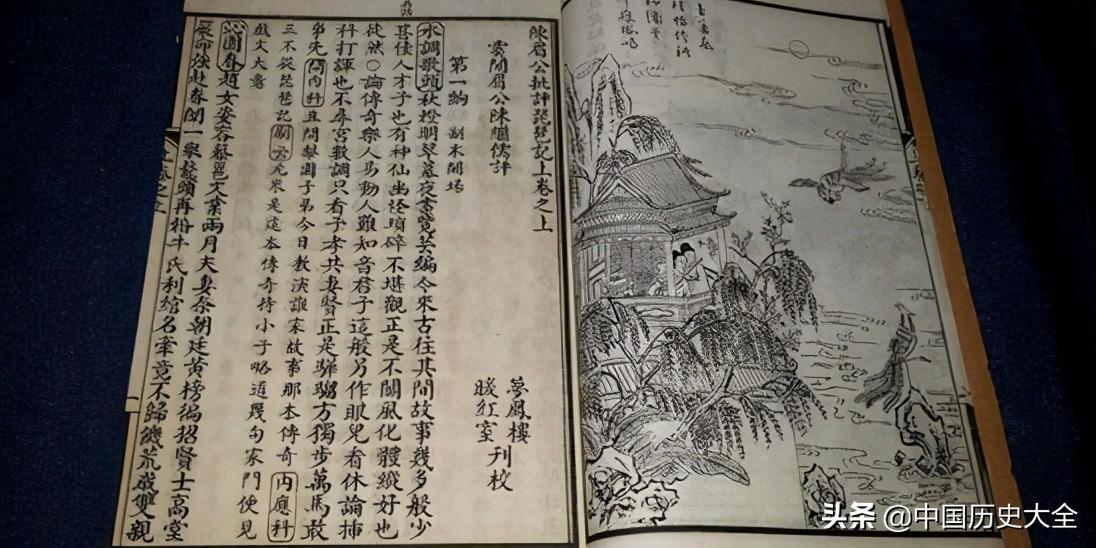 陳眉公批評琵琶記上卷之上
雲間眉公陳繼儒評
夢鳳樓
暖紅室
刊校
第一齣 副末開場
水調歌頭秋燈明翠幕夜案覽芸編今來古往其間故事幾多般少
甚佳人才子也有神仙幽怪瑣碎不堪觀正是不關風化體縱好也
徒然○論傳奇樂人易動人難知音君子這般另作眼兒看休論插
科打諢也不尋宮數調只看子孝共妻賢正是驊騮方獨步萬馬敢
爭先問內科且問子弟今日敷演誰家故事那本傳奇內應科
三不從琵琶記副云元來是這本傳奇待小子略道幾句家門便見
戲文大意
沁園春趙女姿容蔡邕文業兩月夫妻奈朝廷黃榜徧招賢士高堂
嚴命強赴春闈一舉鰲頭再婚牛氏利綰名牽竟不歸饑荒歲雙親
头条 @中国历史大全